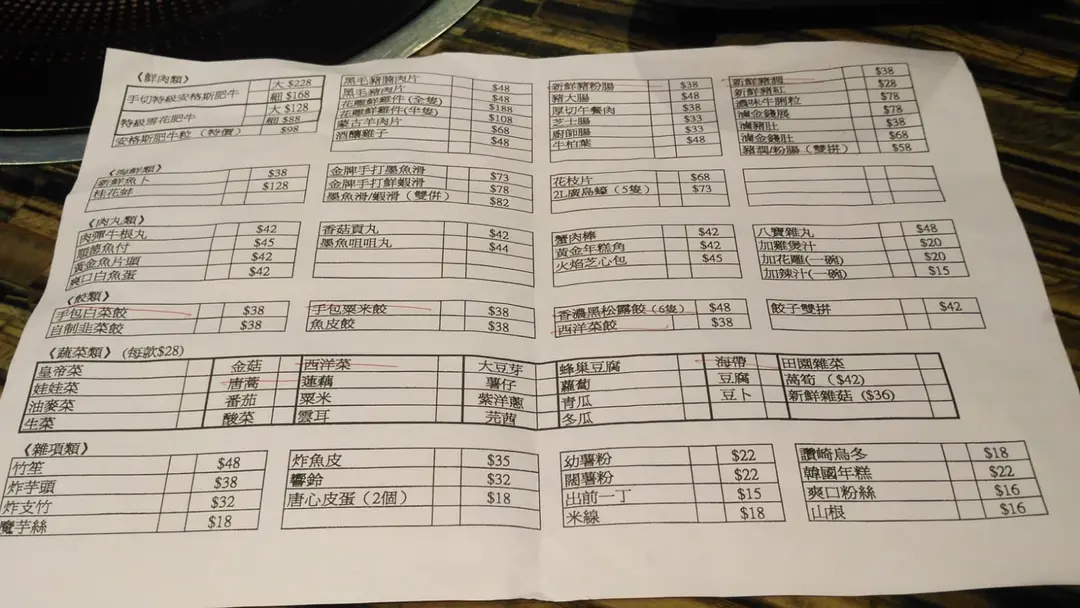 《鮮肉類》
手切特級安格斯肥牛 大 $228
細 $168
特級雪花肥牛 大 $128
細 $88
安格斯肥牛粒（特價） $98
黑毛豬腩肉片 $48
黑毛豬肉片 $48
花雕鮮雞件（全隻） $188
花雕鮮雞件（半隻） $108
蒙古羊肉片 $68
酒釀雞子 $48
新鮮豬粉腸 $38
豬大腸 $48
厚切午餐肉 $38
芝士腸 $33
廚師腸 $33
牛柏葉 $48
新鮮豬潤 $38
新鮮豬紅 $28
濃味牛腩粒 $78
滷金錢展 $78
滷豬肚 $38
滷金錢肚 $68
豬潤/粉腸（雙拼） $58
《海鮮類》
新鮮魚卜 $38
桂花蚌 $128
金牌手打墨魚滑 $73
金牌手打鮮蝦滑 $78
墨魚滑/蝦滑（雙併） $82
花枝片 $68
2L廣島蠔（5隻） $73
《肉丸類》
肉彈牛根丸 $42
順德魚付 $45
黃金魚片頭 $42
爽口白魚蛋 $42
香菇貢丸 $42
墨魚咀咀丸 $44
蟹肉棒 $42
黃金年糕角 $42
火焰芝心包 $45
八寶雜丸 $48
加雞煲汁 $20
加花雕(一碗) $20
加辣汁(一碗) $15
《餃類》
手包白菜餃 $38
自制韭菜餃 $38
手包粟米餃 $38
魚皮餃 $38
香濃黑松露餃（6隻） $48
西洋菜餃 $38
餃子雙拼 $42
《蔬菜類》（每款$28）
皇帝菜 金菇 西洋菜 大豆芽 蜂巢豆腐 海帶 田園雜菜
娃娃菜 唐蒿 蓮藕 薯仔 蘿蔔 豆腐 萵筍（$42）
油麥菜 番茄 粟米 紫洋蔥 青瓜 豆卜 新鮮雜菇（$36）
生菜 酸菜 雲耳 芫茜 冬瓜
《雜項類》
竹笙 $48
炸芋頭 $38
炸支竹 $32
魔芋絲 $18
炸魚皮 $35
響鈴 $32
唐心皮蛋（2個） $18
幼薯粉 $22
闊薯粉 $22
出前一丁 $15
米線 $18
讚崎烏冬 $18
韓國年糕 $22
爽口粉絲 $16
山根 $16